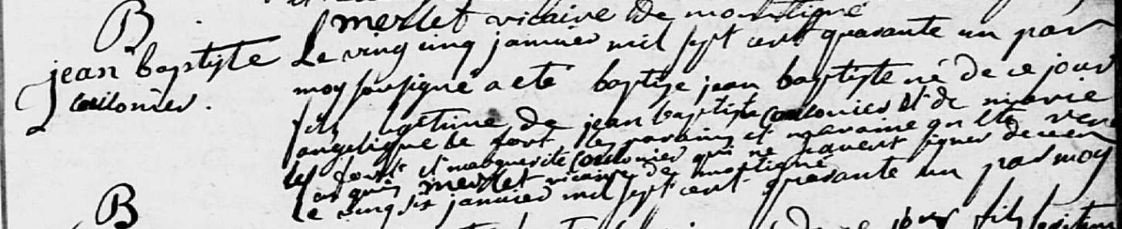 B
jean baptiste
coulonier.
merlet vicaire de montigné
Le vingt cinq janvier mil sept cent quarante un par
moy soussigné a eté baptize jean baptiste né de ce jour
fils legitime de jean baptiste Coulonier et de marie
angelique le fort les parain et maraine ont été
le fort et marguerite Coulonier qui ne savent signer de ce en
quis merlet vicaire de montigné
le vingt six janvier mil sept cent quarante un par moy
B
de ce jour fils legitime